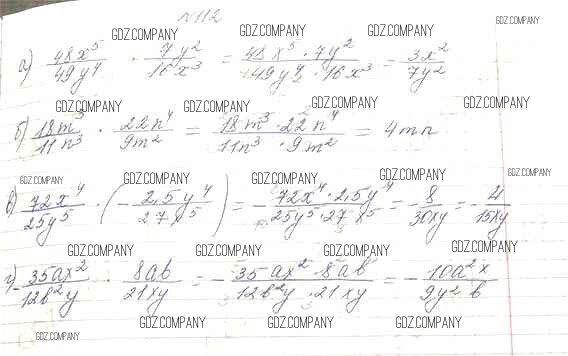 №112
GDZ.COMPANY GDZ.COMPANY GDZ.COMPANY GDZ.COMPANY
а) 48x⁵/49y⁴ · 7y²/16x³ = 48x⁵ · 7y²/49y⁴ · 16x³ = 3x²/7y²
GDZ.COMPANY GDZ.COMPANY GDZ.COMPANY GDZ.COMPANY
б) 18m³/11n³ · 22n⁴/9m² = 18m³ · 22n⁴/11n³ · 9m² = 4mn
GDZ.COMPANY GDZ.COMPANY GDZ.COMPANY GDZ.COMPANY GDZ.COMPANY
в) 72x⁴/25y⁵ · (− 2,5y⁴/27x⁵) = − 72x⁴ · 2,5y⁴/25y⁵ · 27x⁵ = − 8/30xy = − 4/15xy
GDZ.COMPANY GDZ.COMPANY GDZ.COMPANY GDZ.COMPANY
г) − 35ax²/12b²y · 8ab/21xy = − 35ax² · 8ab/12b²y · 21xy = − 10a²x/9y²b
GDZ.COMPANY GDZ.COMPANY GDZ.COMPANY GDZ.COMPANY